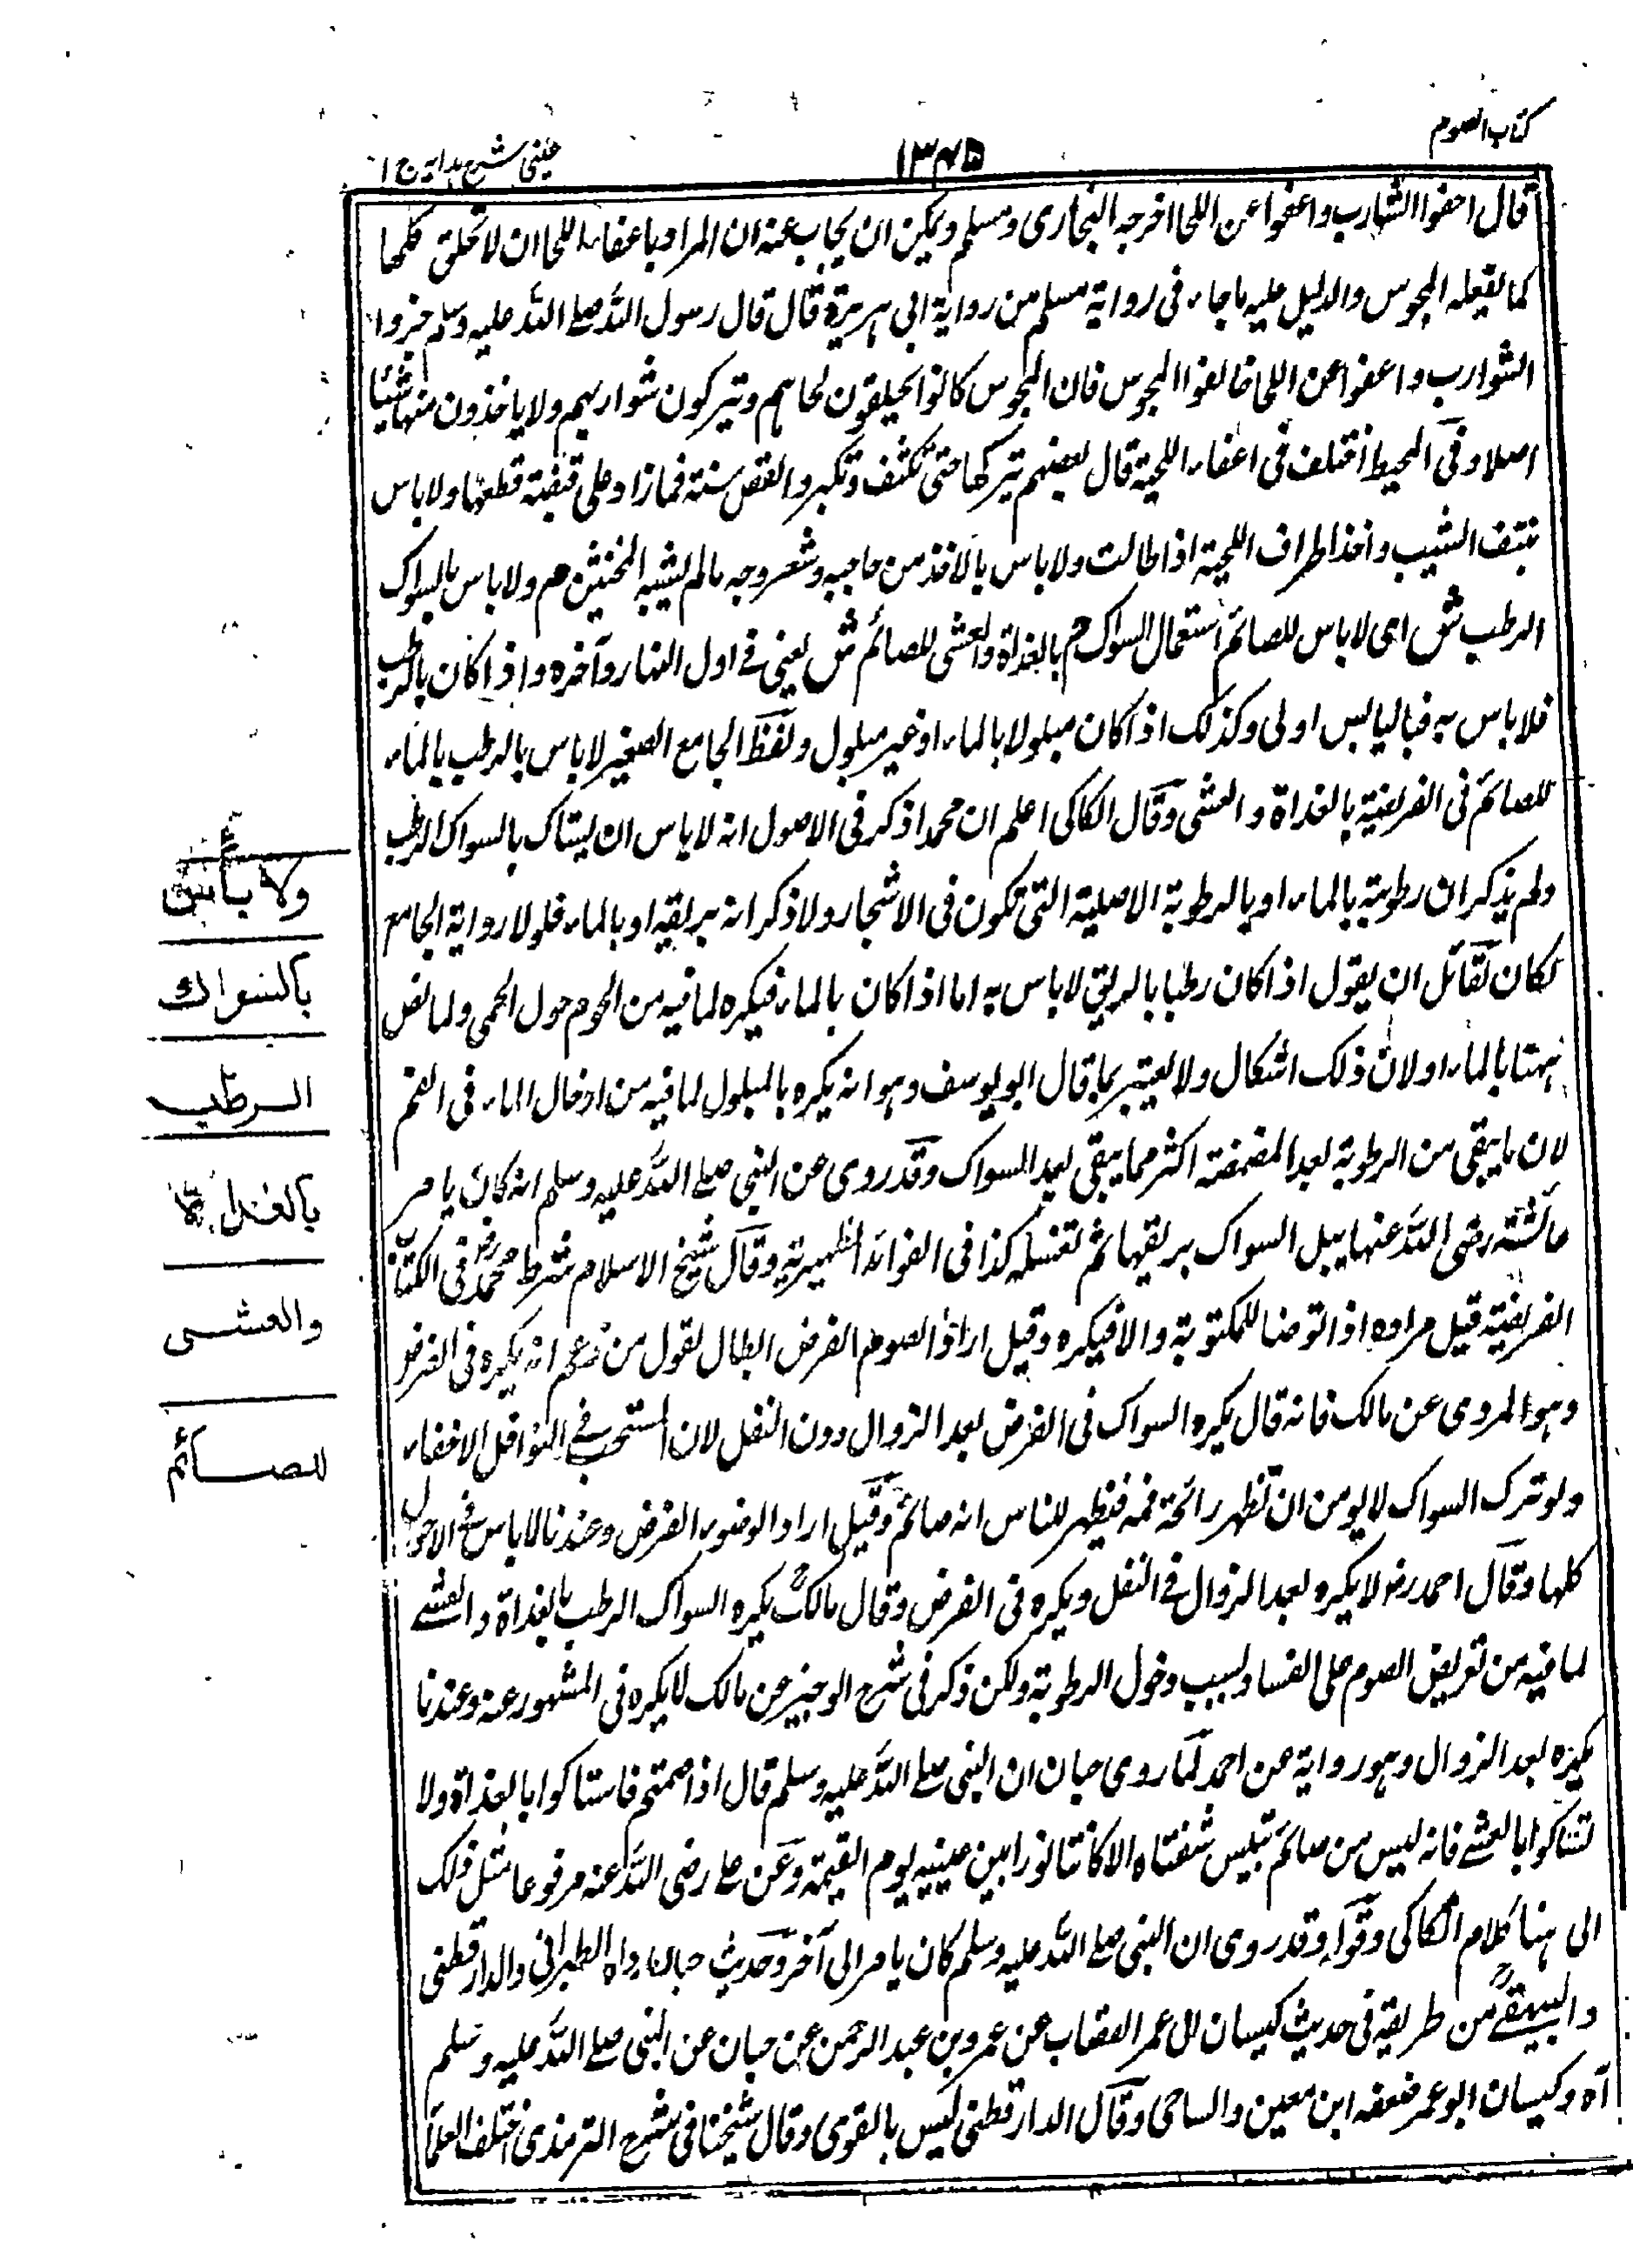 كتاب الصوم
١٣٤٥
عينى شرح هدايه ج ١
قال احفوا الشارب واعفوا عن اللحا اخرجه البخارى ومسلم ويمكن ان يجاب عنه ان المراد باعفاء اللحا ان لا تحلق كلها
كما يفعله المجوس والدليل عليه ما جاء فى رواية مسلم من رواية ابى هريرة قال قال رسول الله صلى الله عليه وسلم جزوا
الشوارب واعفوا عن اللحا خالفوا المجوس فان المجوس كانوا يحلقون لحاهم ويتركون شواربهم ولا ياخذون منها شيئا
اصلا وفى المحيط اختلف فى اعفاء اللحية قال بعضهم يتركها حتى تكثف وتكبر والقص سنة فما زاد على قبضته قطعها ولا باس
بنتف الشيب واخذ اطراف اللحية اذا طالت ولا باس بالاخذ من حاجبه وشعر وجهه ما لم يشبه المخنثين م ولا باس بالسواك
الرطب ش اى لا باس للصائم استعمال السواك م بالغداة والعشى للصائم ش يعنى فى اول النهار وآخره واذا كان بالرطب
فلا باس به فباليابس اولى وكذلك اذا كان مبلولا بالماء او غير مبلول ولفظ الجامع الصغير لا باس بالرطب بالماء
للصائم فى الفريضة بالغداة والعشى وقال الكاكى اعلم ان محمدا ذكر فى الاصول انه لا باس ان يستاك بالسواك الرطب
ولم يذكر ان رطوبته بالماء او بالرطوبة الاصلية التى تكون فى الاشجار ولا ذكر انه بريقه او بالماء فلولا رواية الجامع
لكان لقائل ان يقول اذا كان رطبا بالريق لا باس به اما اذا كان بالماء فيكره لما فيه من الحوم حول الحمى ولما نص
ههنا بالماء اولان ذلك اشكال ولا يعتبر بما قال ابو يوسف وهو انه يكره بالمبلول لما فيه من ادخال الماء فى الفم
لان ما يبقى من الرطوبة بعد المضمضة اكثر مما يبقى بعد السواك وقد روى عن النبى صلى الله عليه وسلم انه كان يامر
عائشة رضى الله عنها يبل السواك بريقها ثم تغسله كذا فى الفوائد الظهيرية وقال شيخ الاسلام شرط محمد فى الكتاب
الفريضة قيل مراده اذا توضا للمكتوبة والا فيكره وقيل اراد الصوم الفرض ابطال لقول من زعم انه يكره فى الفرض
وهو المروى عن مالك فانه قال يكره السواك فى الفرض بعد الزوال دون النفل لان المستحب فى النوافل الاخفاء
ولو ترك السواك لا يومن ان تظهر رائحة فمه فيظهر للناس انه صائم وقيل اراد الوضوء الفرض وعندنا لا باس فى الاحوال
كلها وقال احمد رض لا يكره بعد الزوال فى النفل ويكره فى الفرض وقال مالك يكره السواك الرطب بالغداة والعشى
لما فيه من تعريض الصوم على الفساد بسبب دخول الرطوبة ولكن ذكر فى شرح الوجيز عن مالك لا يكره فى المشهور عنه وعندنا
يكره بعد الزوال وهو رواية عن احمد لما روى حبان ان النبى صلى الله عليه وسلم قال اذا صمتم فاستاكوا بالغداة ولا
تستاكوا بالعشى فانه ليس من صائم تيبس شفتاه الا كانتا نورا بين عينيه يوم القيمة وعن على رضى الله عنه مرفوعا مثل ذلك
الى هنا كلام الكاكى وقوله وقد روى ان النبى صلى الله عليه وسلم كان يامر الى آخر وحديث حبان رواه الطبرانى والدارقطنى
والبيهقى من طريقه فى حديث كيسان ابى عمر القصاب عن عمرو بن عبد الرحمن عن حبان عن النبى صلى الله عليه وسلم
آه وكيسان ابو عمر ضعفه ابن معين والساجى وقال الدارقطنى ليس بالقوى وقال شيخنا فى شرح الترمذى اختلف العلما
ولا بأس
بالسواك
الرطب
بالغداة
والعشى
للصائم